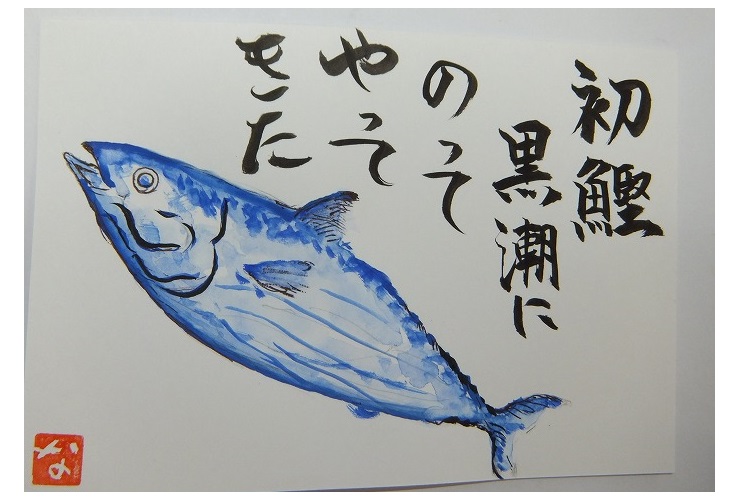 初鰹
黒潮に
のって
やって
きた
な